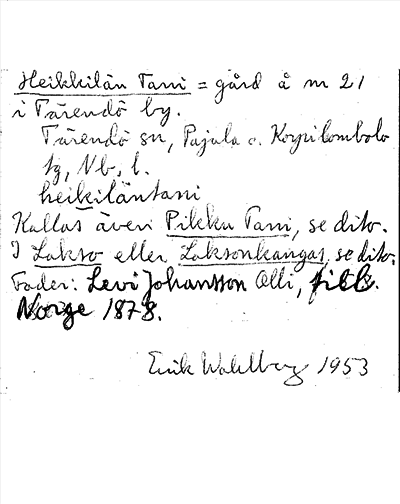 Heikkilän Tani = gård å m 21
i Tärendö by.
Tärendö sn, Pajala o. Korpilombolo
tg, Nb. l.
heikiläntani
Kallas även Pikku Tani, se dito.
I Lakso eller Laksonkangas, se dito.
Fader: Levi Johansson Olli,
Norge 1878.
Erik Wahlberg 1953